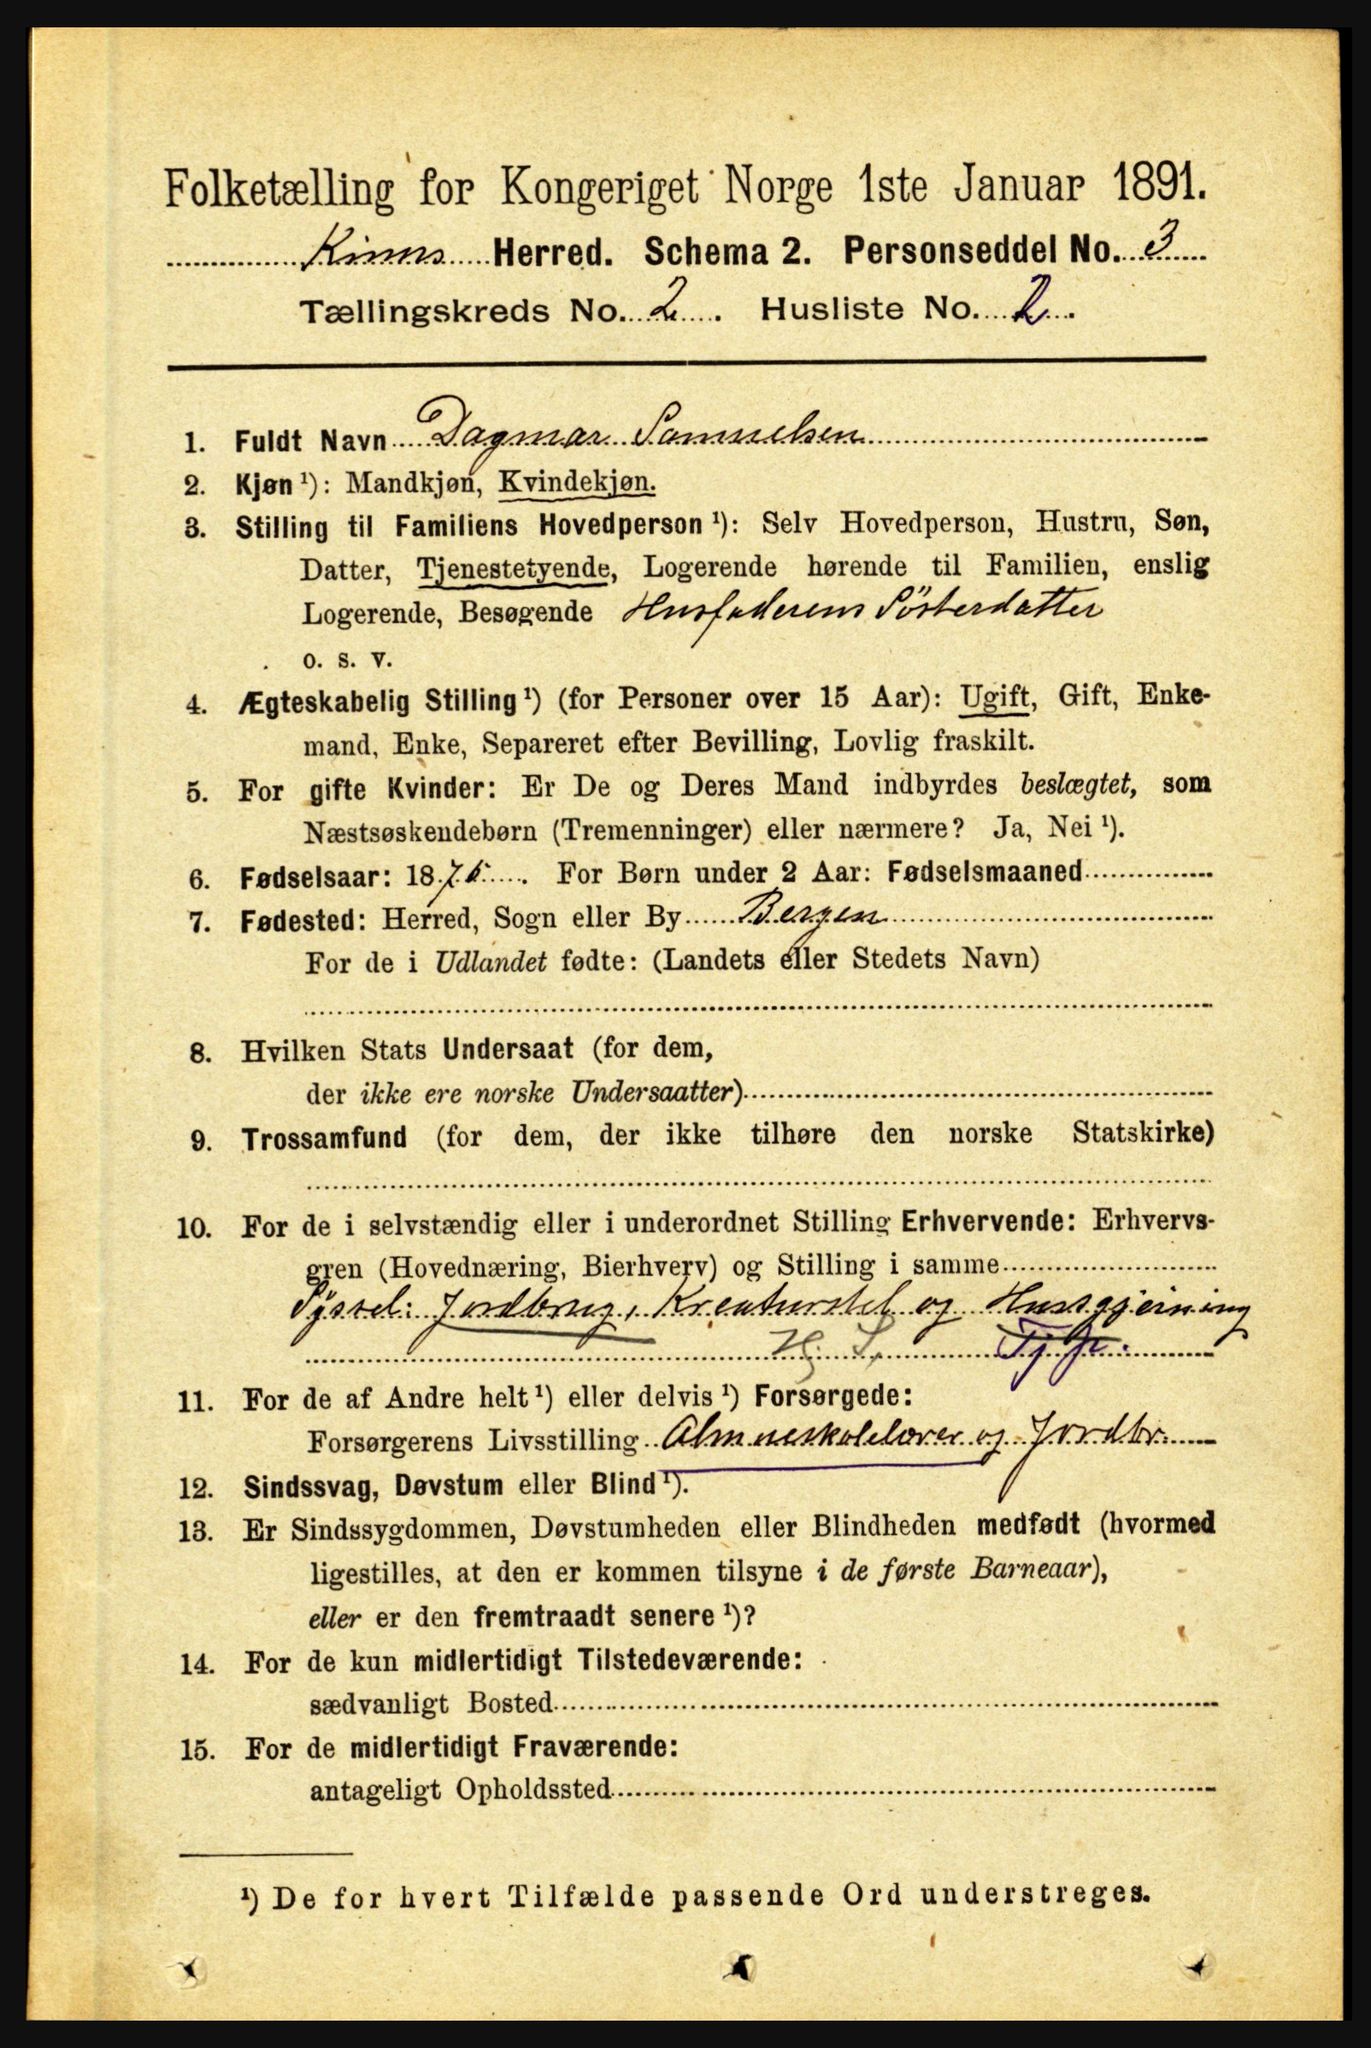 Folketælling for Kongeriget Norge 1ste Januar 1891.
Kinns Herred. Schema 2. Personseddel No. 3
Tællingskreds No. 2. Husliste No. 2.
1. Fuldt Navn Dagmar Samuelsen
2. Kjøn ¹): Mandkjøn, Kvindekjøn.
3. Stilling til Familiens Hovedperson ¹): Selv Hovedperson, Hustru, Søn,
Datter, Tjenestetyende, Logerende hørende til Familien, enslig
Logerende, Besøgende Husfaderens Søsterdatter
o. s. v.
4. Ægteskabelig Stilling ¹) (for Personer over 15 Aar): Ugift, Gift, Enke-
mand, Enke, Separeret efter Bevilling, Lovlig fraskilt.
5. For gifte Kvinder: Er De og Deres Mand indbyrdes beslægtet, som
Næstsøskendebørn (Tremenninger) eller nærmere? Ja, Nei ¹).
6. Fødselsaar: 1875. For Børn under 2 Aar: Fødselsmaaned
7. Fødested: Herred, Sogn eller By Bergen
For de i Udlandet fødte: (Landets eller Stedets Navn)
8. Hvilken Stats Undersaat (for dem,
der ikke ere norske Undersaatter)
9. Trossamfund (for dem, der ikke tilhøre den norske Statskirke)
10. For de i selvstændig eller i underordnet Stilling Erhvervende: Erhvervs-
gren (Hovednæring, Bierhverv) og Stilling i samme
Syssel: Jordbrug, Kreaturstel og Husgjerning
11. For de af Andre helt ¹) eller delvis ¹) Forsørgede:
Forsørgerens Livsstilling Almueskolelærer og Jordbr.
12. Sindssvag, Døvstum eller Blind ¹).
13. Er Sindssygdommen, Døvstumheden eller Blindheden medfødt (hvormed
ligestilles, at den er kommen tilsyne i de første Barneaar),
eller er den fremtraadt senere ¹)?
14. For de kun midlertidigt Tilstedeværende:
sædvanligt Bosted
15. For de midlertidigt Fraværende:
antageligt Opholdssted
¹) De for hvert Tilfælde passende Ord understreges.